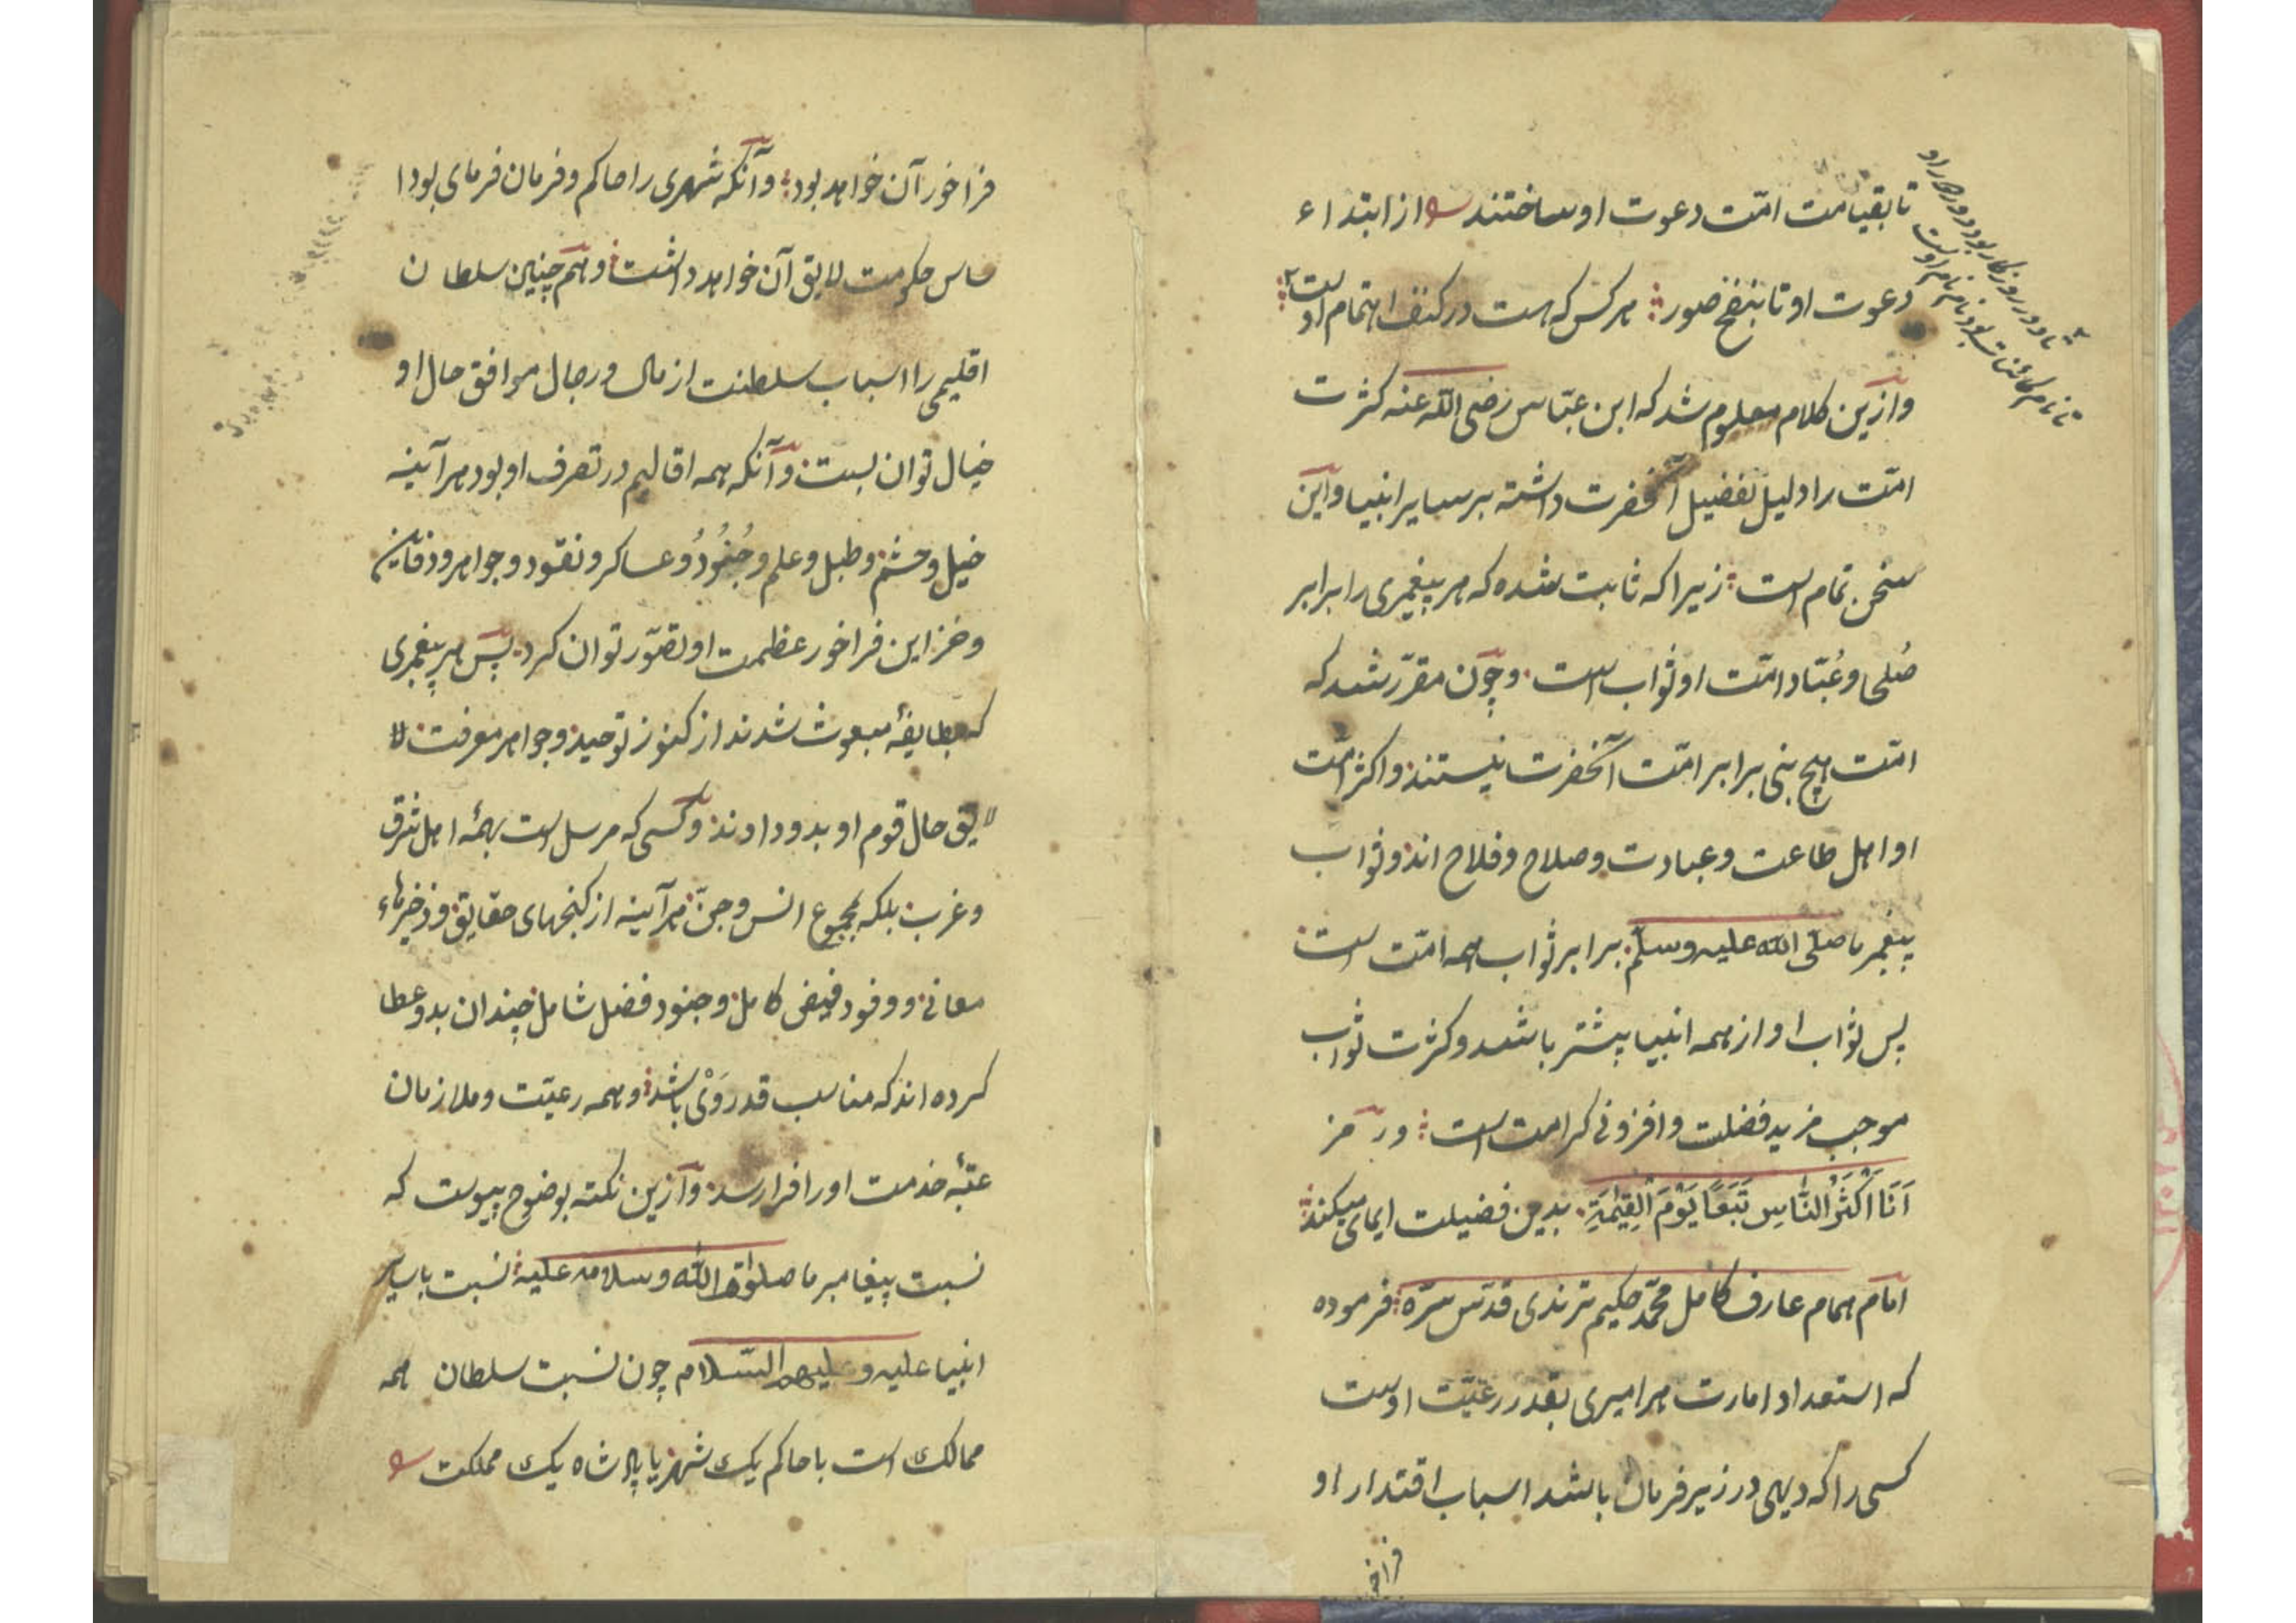 تا بقیامت امّت دعوت او ساختند از ابتداء
دعوت او تا بنفخ صور هر کس که هست در کنف اهتمام اوست
وازین کلام معلوم شد که ابن عبّاس رضی الله عنه کثرت
امّت را دلیل تفضیل آنحضرت داشته بر سایر انبیا و این
سخن تمام است زیرا که ثابت شده که هر پیغمبری را برابر
صُلحا و عُبّاد امّت او ثواب است و چون مقرّر شد که
امّت هیچ نبی برابر امّت آنحضرت نیستند و اکثر امّت
او اهل طاعت و عبادت و صلاح و فلاح اند و ثواب
پیغمبر ما صلّی الله علیه وسلّم برابر ثواب همه امّت است
پس ثواب او از همه انبیا بیشتر باشد و کثرت ثواب
موجب مزید فضلت و افزونی کرامت است و رمز
اَنَا اَکْثَرُ النَّاسِ تَبَعًا یَوْمَ الْقِیٰمَةِ بدین فضیلت ایمای میکند
امام همام عارف کامل محمّد حکیم ترندی قدّس سرّه فرموده
که استعداد امارت هر امیری بقدر رعیّت اوست
کسی را که دیهی در زیر فرمان باشد اسباب اقتدار او
فراخ
تا دور روزگار بود دور دور او
تا نام کائنات بود نام نام اوست
فراخور آن خواهد بود و آنکه شهری را حاکم و فرمان فرمای بود ا
ساس حکومت لایق آن خواهد داشت و هم چنین سلطان
اقلیمی را اسباب سلطنت از مال و رجال موافق حال او
خیال توان بست و آنکه همه اقالیم در تصرف او بود هر آینه
خیل و حشم و طبل و علم و جُنُودُ و عساکر و نقود و جواهر و دفاین
و خزاین فراخور عظمت او تصوّر توان کرد پس هر پیغمبری
که بطایفهٔ مبعوث شدند از کنوز توحید و جواهر معرفت لا
لایق حال قوم او بدو دادند و کسی که مرسل است بهمهٔ اهل شرق
و غرب بلکه بمجموع انس و جنّ هر آینه از گنجهای حقایق و ذخیرهاء
معانی و وفود فیض کامل و جنود فضل شامل چندان بدو عطا
کرده اند که مناسب قدر وَیْ باشد و همه رعیّت و ملازمان
عتبهٔ خدمت او را فرا رسد و ازین نکته بوضوح پیوست که
نسبت پیغامبر ما صلوات الله وسلامه علیه نسبت با سایر
انبیا علیه و علیهم السّلام چون نسبت سلطان همه
ممالک است با حاکم یک شهر یا پادشاه یک مملکت